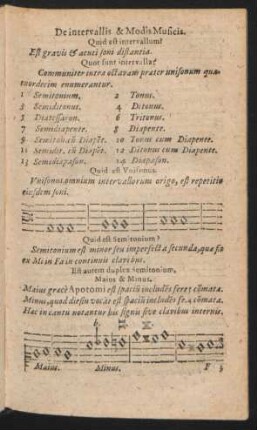 De intervallis & Modis Musicis.
Quid est intervallum?
Est gravis & acuti soni distantia.
Quot sunt intervalla?
Communiter intra octavam præter unisonum qua-
tuordecim enumerantur.
1 Semitonium. 2 Tonus.
3 Semiditonus. 4 Ditonus.
5 Diatessaron. 6 Tritonus.
7 Semidiapente. 8 Diapente.
9 Semito. cū Diapēte. 10 Tonus cum Diapente.
11 Semidit. cū Diapēt. 12 Ditonus cum Diapente
13 Semidiapason. 14 Diapason.
Quid est Unisonus.
Vnisonus, omnium intervallorum origo, est repetitio
eiusdem soni.
Quid est Semitonium?
Semitonium est minor seu imperfecta secunda, quæ fit
ex Mi in Fa in continuis clavibus.
Est autem duplex semitonium,
Maius & Minus.
Maius græcè Apotomi est spacii includēs ferè 5 cōmata.
Minus, quod diesin vocāt est spacii includēs fe. 4 cōmata.
Hæc in cantu notantur his signis sive clavibus
Maius. Minus. F 5